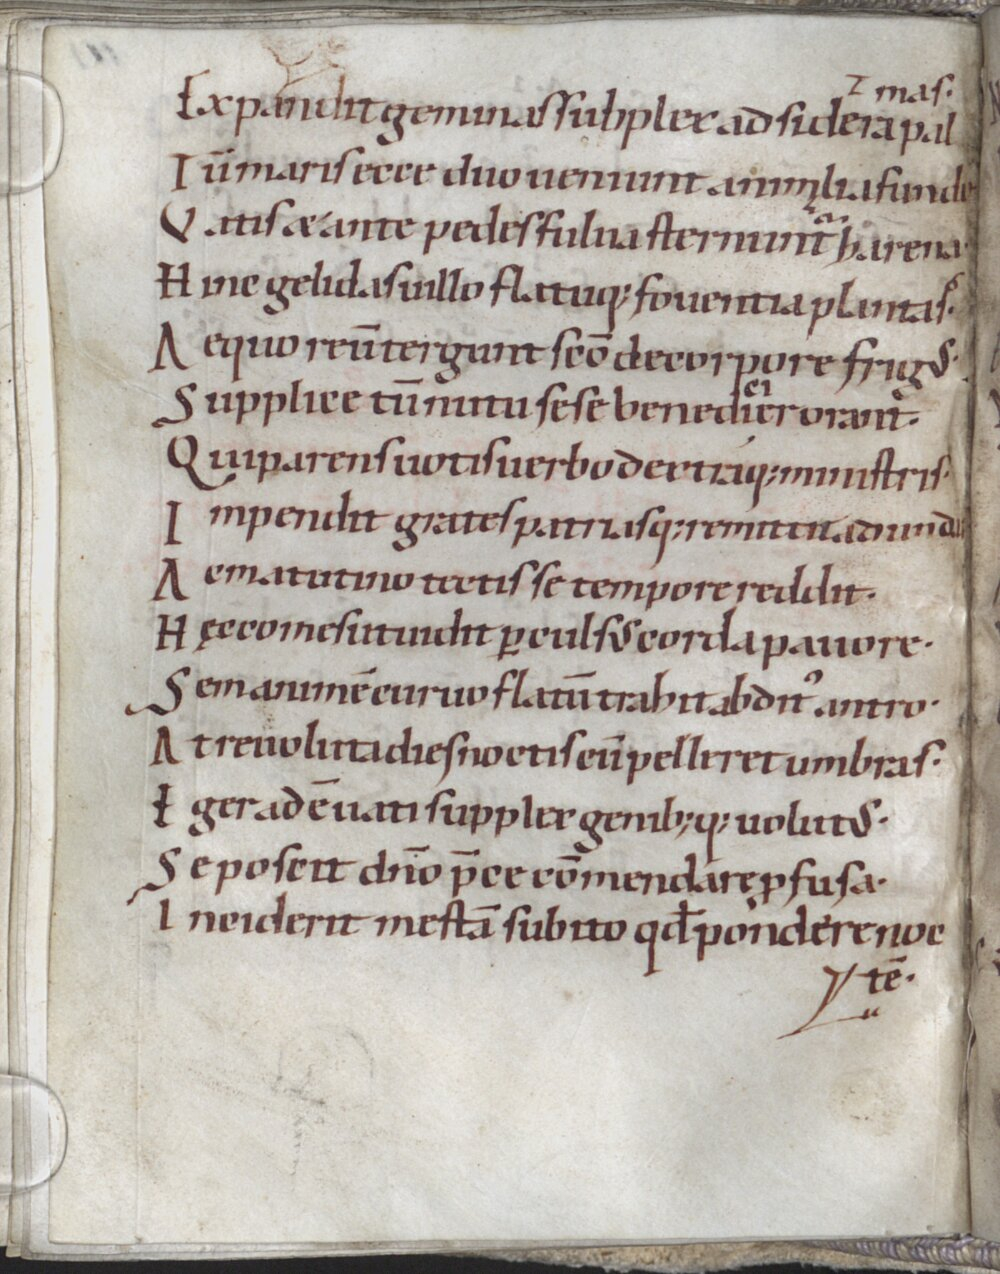 mas·
Expandit geminas subplex ad sidera pal
Tū maris ecce duo veniunt animalia fund
Vatis & ante pedes fulva sternunt̃ harena
Hinc gelidas villo flatuq; foventia plantas·
Aequoreū tergunt scō de corpore frigꝰ·
Supplice tū nutu sese benedicier orant·
Qui parens votis verbo dextraq; ministris·
Impendit grates patriasq; remittit ad unda
Ae matutino tectis se tempore reddit·
Hęc comes ut vidit ꝑculsꝰ corda pavore·
Semanimē curvo flatū trahit abditꝰ antro·
At revoluta dies noctis cū pelleret umbras·
Eger adē vati supplex genib; q; volutꝰ·
Se poscit dn̄o p̄ce cōmendare ꝓfusa·
Inciderit mestā subito qđ pondere noc
tē·